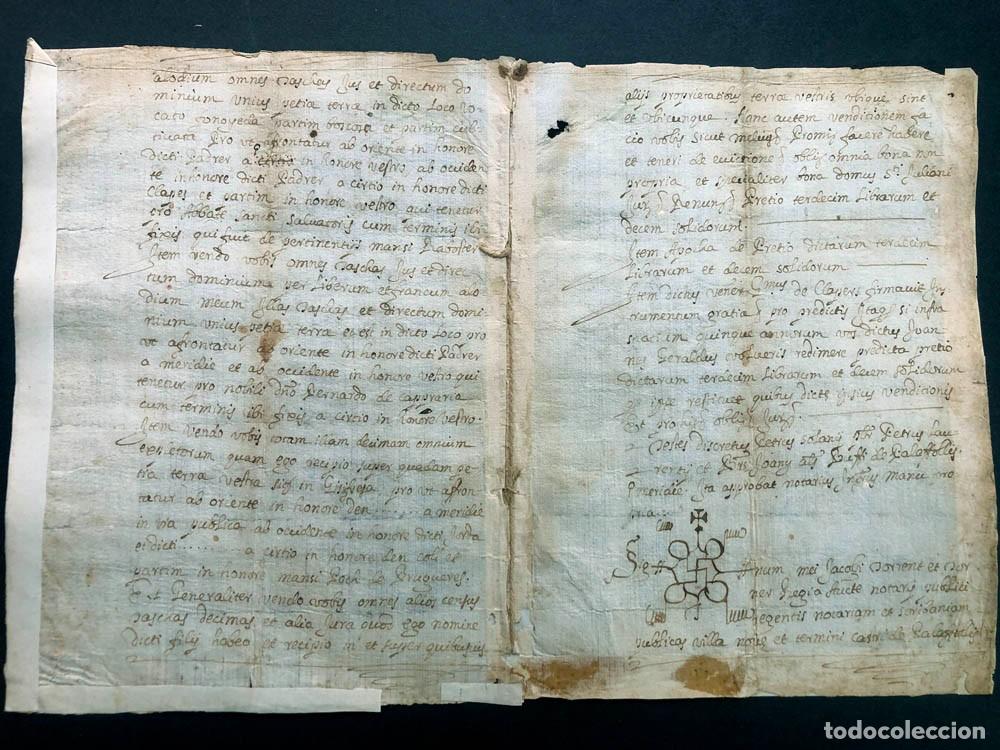 alodium omnes Taschas Jus et directum do
minium unius petia terra in dicto Loco vo
cato partim boscosa et partim cul
tivata Pro ut afrontatur ab oriente in honore
dicti Padrer a circio in honore vestro, ab occiden
te in honore dicti Padrer a circio in honore dicti
Clapes et partim in honore vestro qui tenetur
pro Abbate Sancti Salvatoris cum terminis ibi
fixis qui fuit de pertinentiis mansi
Item vendo vobis omnes Taschas Jus et direc
tum dominium per Liberum et francum alo
dium meum Illas Taschas et directum domi
nium unius petia terra et est in dicto Loco pro
ut afrontatur ab oriente in honore dicti Padrer
a meridie et ab occidente in honore vestro qui
tenetur pro nobili dño Bernardo de Capraria
cum terminis ibi fixis a circio in honore vestro.
Item vendo vobis totam illam decimam omnium
expletorum quam ego recipio super quadam pe
tia terra vestra sig in pro ut afron
tatur ab oriente in honore den ...... a meridie
in via publica ab occidente in honore dicti
et dicti ........ a circio in honore den et
partim in honore mansi Roch de Brugueres.
Et Generaliter vendo vobis omnes alios census
taschas decimas et alia Jura quod ego nomine
dicti filij habeo et recipio in et super quibusvis
alijs proprietatibus terra vestris ubique sint
et ubicunque. Hanc autem vendicionem fa
cio vobis sicut melius Promis favere habere
et teneri de evictione oblis omnia bona non
propria et specialiter bona domus Sti Juliani
Jur Renun Pretio terdecim Librarum et
decem solidorum.
Item Apocha de Pretio dictarum terdecim
Librarum et decem solidorum
Item dictus vener Gmus de Clapers firmavit Ins
trumentum gratia pro predictis Itaq si infra
spatium quinque annorum vos dictus Joan
nes Geraldus volueris redimere predicta pretio
dictarum terdecim Librarum et decem solidorum
ipse restituet dicti ipsius vendicionis
Et promis oblis Jur
Testes Discretus Petrus Solanis Petrus Lau
rentij et Joany de Palafollis
Ita approbat notarius manu pro
pria.
Sig num mei Jacobi Dorient et Dor
nes Regia aucte notarij publici
Regentis notariam et scribaniam
publicas villa et termini castri de Palafollis
todocoleccion